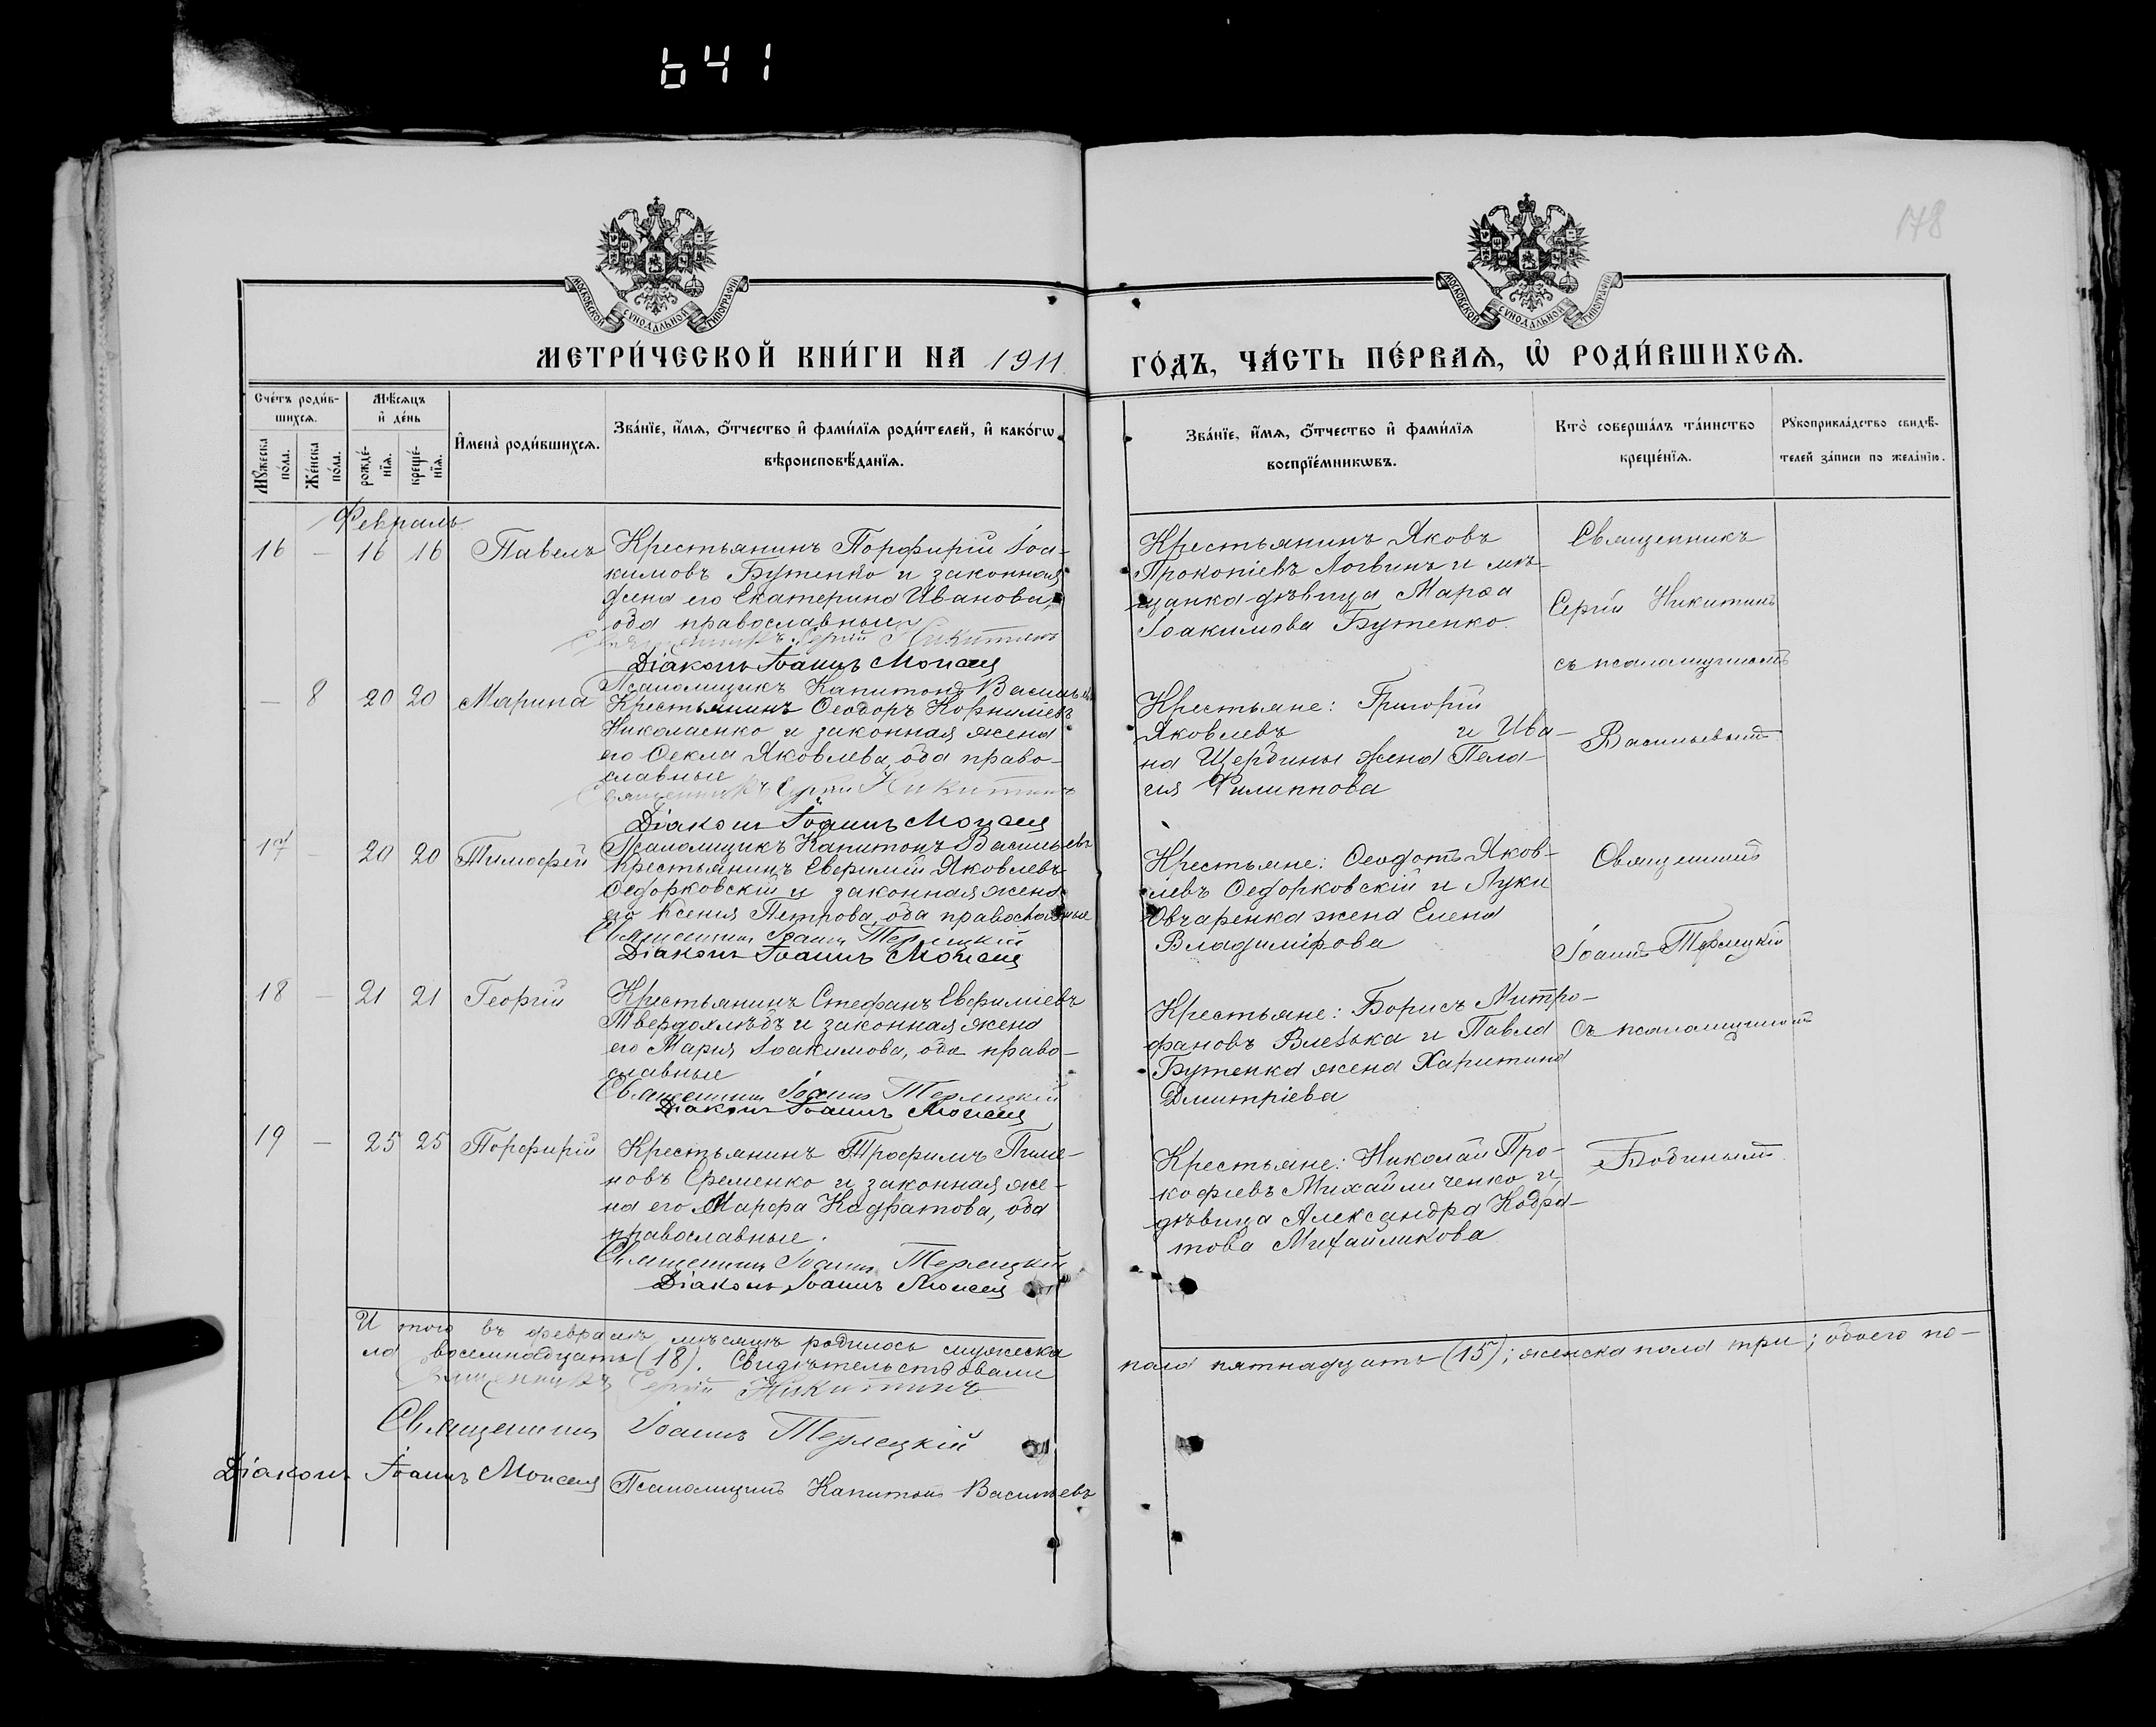 641
178
МОСКОВСКОЙ СУНОДАЛЬНОЙ ТИПОГРАФІИ
МОСКОВСКОЙ СУНОДАЛЬНОЙ ТИПОГРАФІИ
МЕТРИ́ЧЕСКОЙ КНИ́ГИ НА 1911 ГО́ДЪ, ЧА́СТЬ ПЕ́РВАѦ, Ѡ҆ РОДИ́ВШИХСѦ.
Сче́тъ роди́в-
шихсѧ.
Мѣ́сѧцъ
и҆ де́нь
Мꙋ́жеска
по́ла.
Же́нска
по́ла.
рожде́-
нїѧ.
креще́-
нїѧ.
И҆мена̀ роди́вшихсѧ.
Зва́нїе, и҆́мѧ, ѻ҆́тчество и҆ фами́лїѧ роди́телей, и҆ како́гѡ
вѣроисповѣ́данїѧ.
Зва́нїе, и҆́мѧ, ѻ҆́тчество и҆ фами́лїѧ
воспрїе́мникѡвъ.
Кто̀ соверша́лъ та́инство
креще́нїѧ.
Рꙋкоприкла́дство свидѣ́-
телей за́писи по жела́нїю.
Февраль
16 — 16 16 Павелъ Крестьянинъ Порфирій Іоа-
кимовъ Бутенко и законная
жена его Екатерина Иванова,
оба православные
Священникъ Сергій Никитинъ
Діаконъ Іоаннъ
Псаломщикъ Капитонъ Васильевъ
Крестьянинъ Яковъ
Прокопіевъ Логвинъ и мѣ-
щанка дѣвица Марѳа
Іоакимова Бутенко.
Священникъ
Сергій Никитинъ
съ псаломщикомъ
Васильевымъ
— 8 20 20 Марина Крестьянинъ Ѳеодоръ Корниліевъ
Николаенко и законная жена
его Ѳекла Яковлева, оба право-
славные
Священникъ Сергій Никитинъ
Діаконъ Іоаннъ
Псаломщикъ Капитонъ Васильевъ
Крестьяне: Григорій
Яковлевъ и Ива-
на Щербины жена Пела-
гия Филиппова
17 — 20 20 Тимофей Крестьянинъ Евфимій Яковлевъ
Ѳедорковскій и законная жена
его Ксенія Петрова, оба православные
Священникъ Іоаннъ Терлецкій
Діаконъ Іоаннъ
Крестьяне: Ѳеодотъ Яков-
левъ Ѳедорковскій и Луки
Овчаренка жена Елена
Владимірова
Священникъ
Іоаннъ Терлецкій
съ псаломщикомъ
Бодинымъ
18 — 21 21 Георгій Крестьянинъ Стефанъ Евфиміевъ
Твердохлѣбъ и законная жена
его Марія Іоакимова, оба право-
славные
Священникъ Іоаннъ Терлецкій
Діаконъ Іоаннъ
Крестьяне: Борисъ Митро-
фановъ и Павла
Бутенка жена Харитина
Дмитріева
19 — 25 25 Порфирій Крестьянинъ Трофимъ Пиме-
новъ Еременко и законная же-
на его Марфа Кодратова, оба
православные.
Священникъ Іоаннъ Терлецкій
Діаконъ Іоаннъ
Крестьяне: Николай Про-
кофіевъ Михайличенко и
дѣвица Александра Кодра-
това Михайликова
И того въ февралѣ мѣсяцѣ родилось мужеска пола пятнадцать (15); женска пола три; обоего по-
ла восемнадцать (18). Свидѣтельствовали
Священникъ Сергій Никитинъ
Священникъ Іоаннъ Терлецкій
Діаконъ Іоаннъ Псаломщикъ Капитонъ Васильевъ